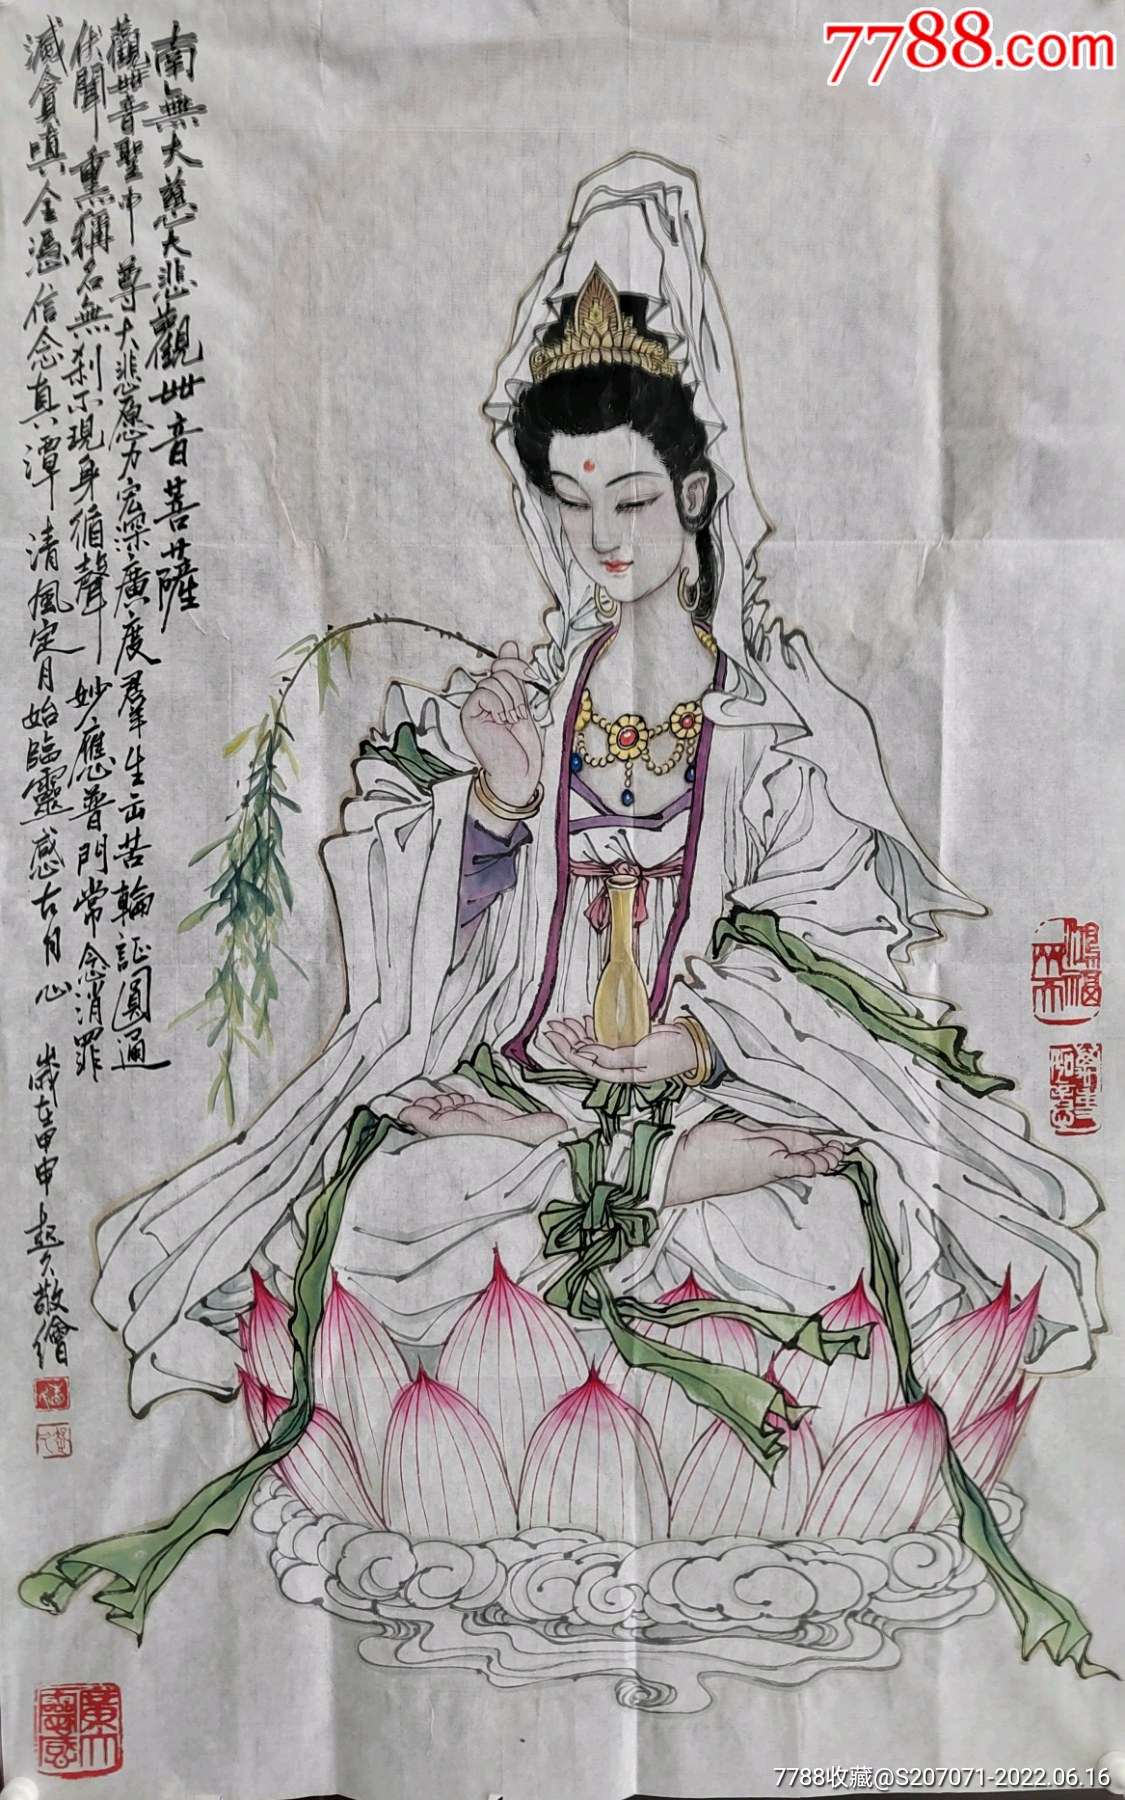 7788.com
南無大慈大悲觀世音菩薩
觀世音聖中尊大悲愿力宏深廣度羣生出苦輪証圓通
伏聞熏稱名無剎不現身循聲妙應普門常念消罪
滅貪嗔全憑信念真潭清風定月始臨靈感在月心
歲在甲申起久敬繪
鴻福
廣大靈感
7788收藏@S207071-2022.06.16